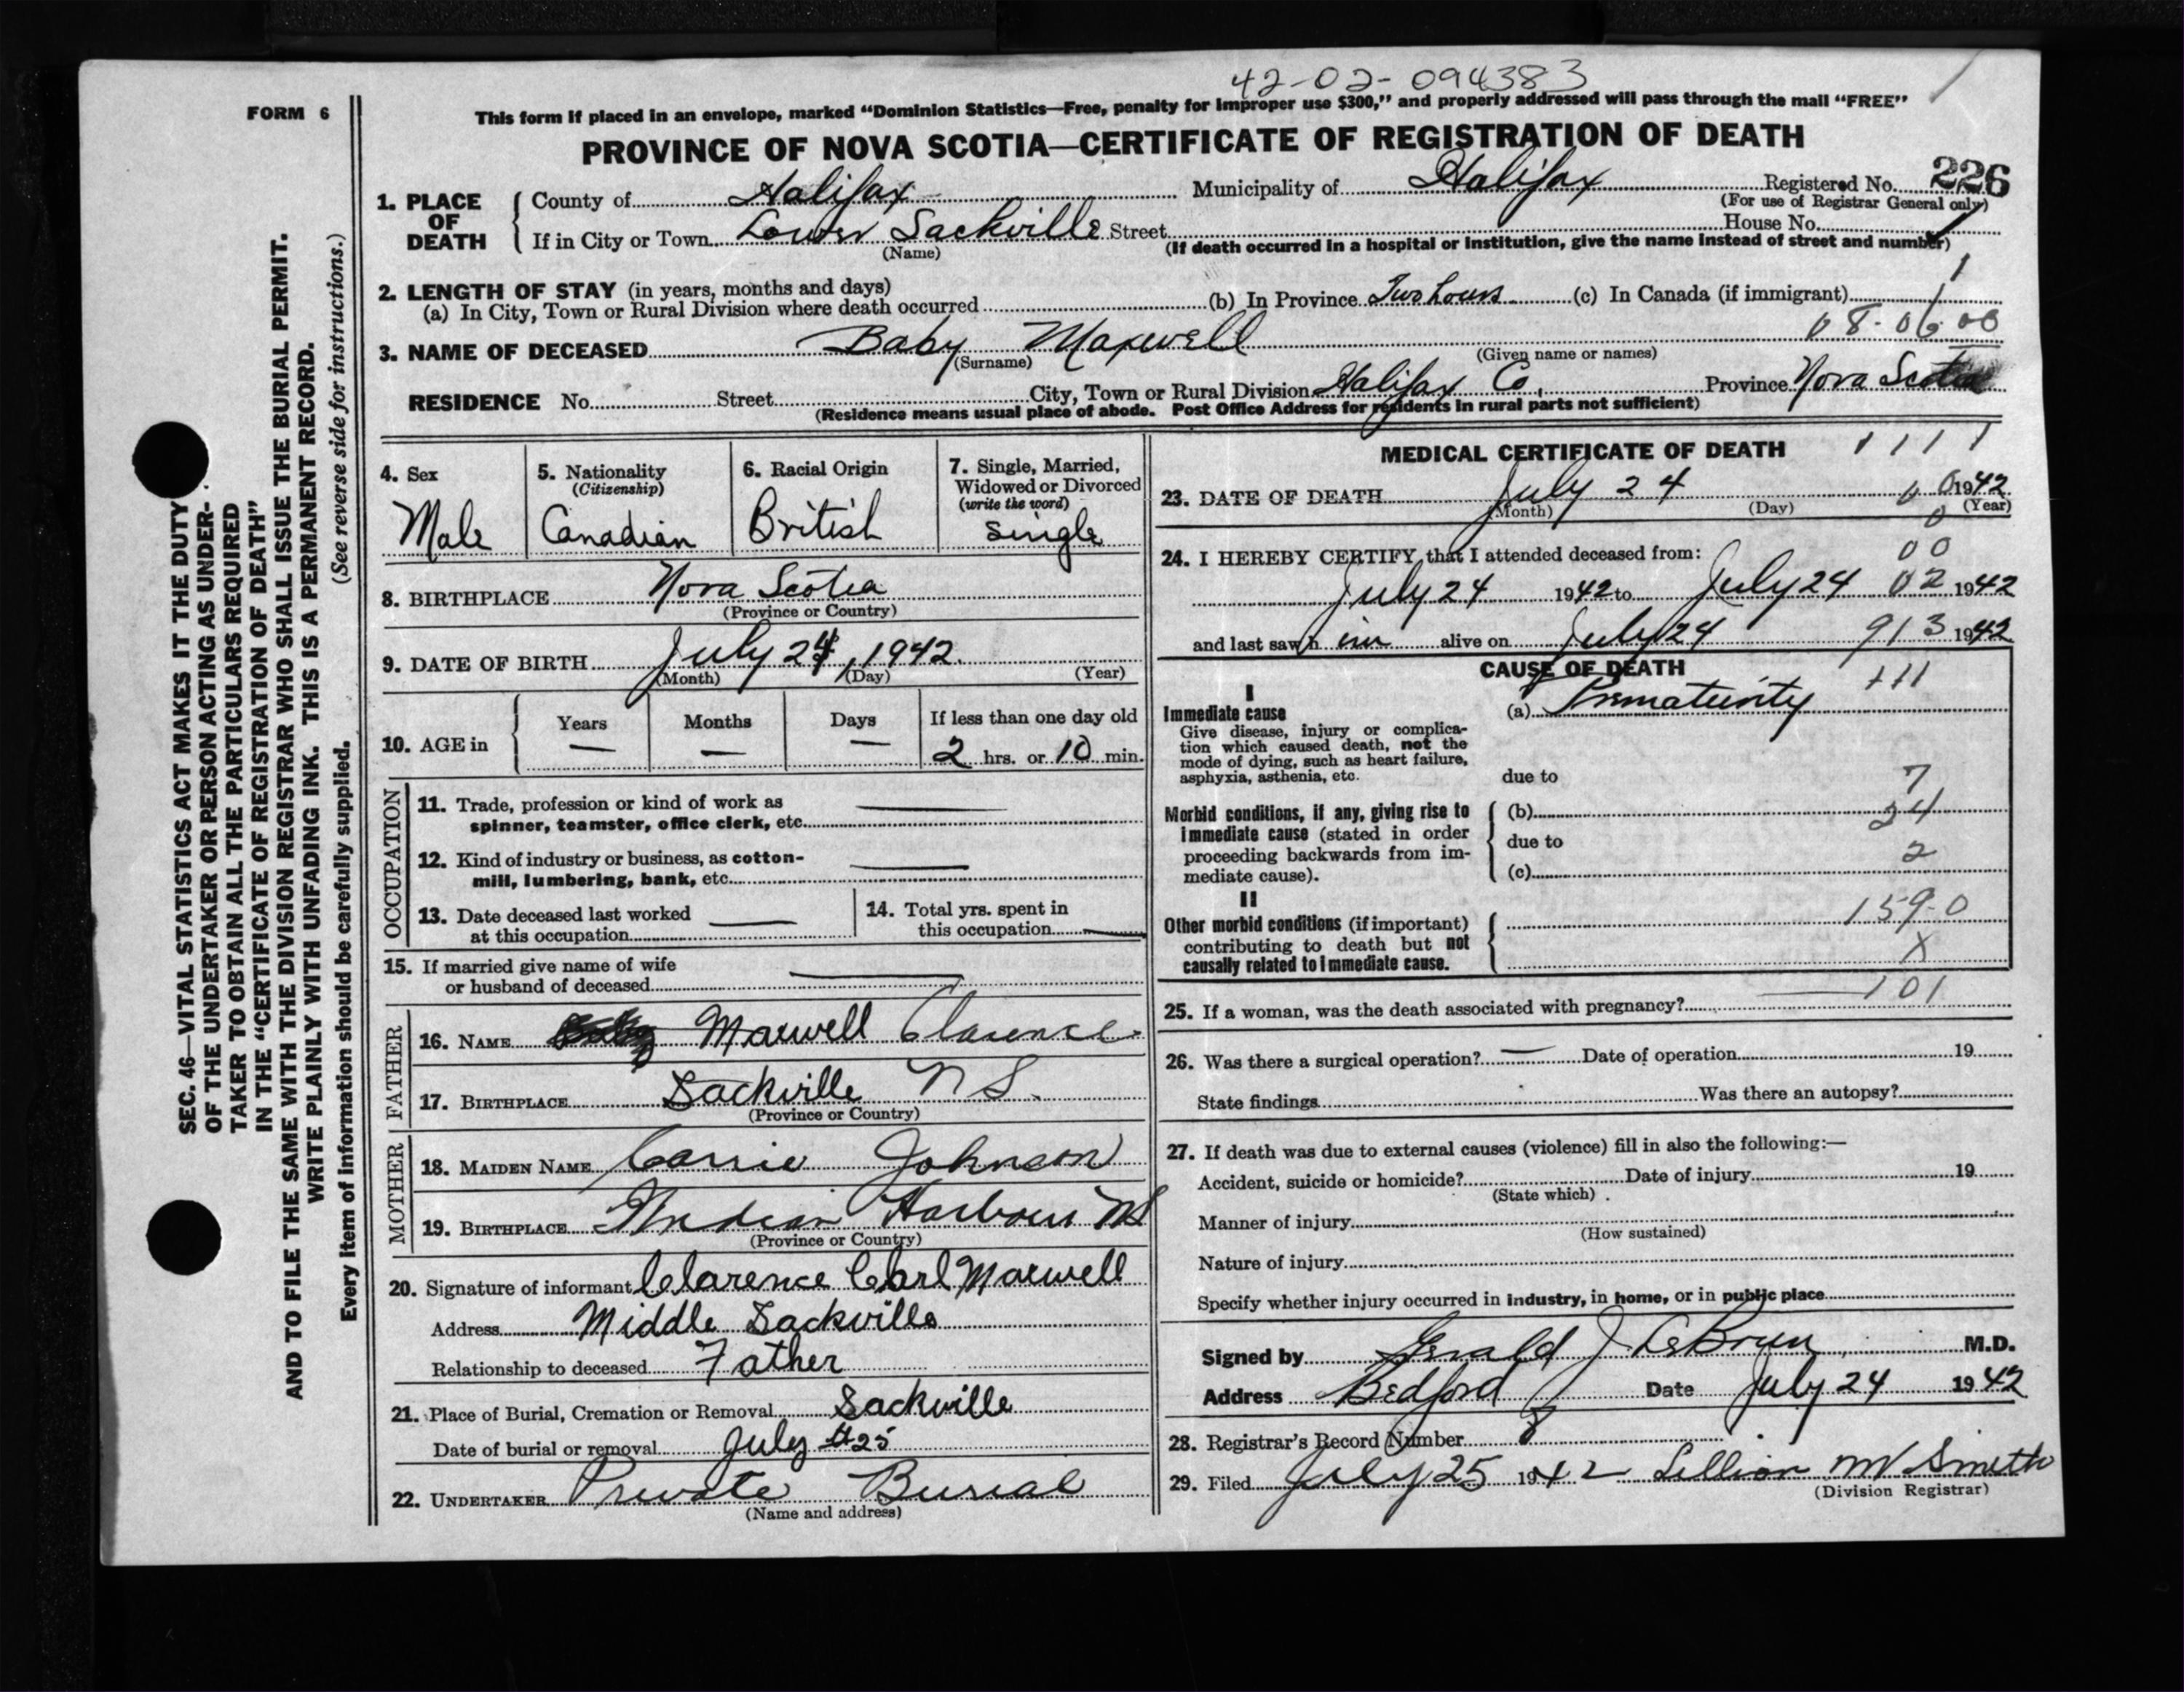 42-02-094383
FORM 6
This form if placed in an envelope, marked "Dominion Statistics—Free, penalty for improper use $300," and properly addressed will pass through the mail "FREE"
PROVINCE OF NOVA SCOTIA—CERTIFICATE OF REGISTRATION OF DEATH
1. PLACE OF DEATH
County of Halifax Municipality of Halifax Registered No. 226
(For use of Registrar General only)
If in City or Town Lower Sackville Street House No.
(Name) (If death occurred in a hospital or institution, give the name instead of street and number)
2. LENGTH OF STAY (in years, months and days)
(a) In City, Town or Rural Division where death occurred (b) In Province Two hours (c) In Canada (if immigrant)
08-06-00
3. NAME OF DECEASED Baby Maxwell
(Surname) (Given name or names)
RESIDENCE No. Street City, Town or Rural Division Halifax Co. Province Nova Scotia
(Residence means usual place of abode. Post Office Address for residents in rural parts not sufficient)
SEC. 46—VITAL STATISTICS ACT MAKES IT THE DUTY
OF THE UNDERTAKER OR PERSON ACTING AS UNDER-
TAKER TO OBTAIN ALL THE PARTICULARS REQUIRED
IN THE "CERTIFICATE OF REGISTRATION OF DEATH"
AND TO FILE THE SAME WITH THE DIVISION REGISTRAR WHO SHALL ISSUE THE BURIAL PERMIT.
WRITE PLAINLY WITH UNFADING INK. THIS IS A PERMANENT RECORD.
(See reverse side for instructions.)
Every item of information should be carefully supplied.
4. Sex
Male
5. Nationality
(Citizenship)
Canadian
6. Racial Origin
British
7. Single, Married,
Widowed or Divorced
(write the word)
Single
8. BIRTHPLACE Nova Scotia
(Province or Country)
9. DATE OF BIRTH July 24, 1942
(Month) (Day) (Year)
10. AGE in
Years — Months — Days —
If less than one day old
2 hrs. or 10 min.
OCCUPATION
11. Trade, profession or kind of work as
spinner, teamster, office clerk, etc.
12. Kind of industry or business, as cotton-
mill, lumbering, bank, etc.
13. Date deceased last worked
at this occupation
14. Total yrs. spent in
this occupation
15. If married give name of wife
or husband of deceased
FATHER
16. NAME Maxwell Clarence
17. BIRTHPLACE Sackville N S.
(Province or Country)
MOTHER
18. MAIDEN NAME Carrie Johnson
19. BIRTHPLACE Indian Harbour NS
(Province or Country)
20. Signature of informant Clarence Carl Maxwell
Address Middle Sackville
Relationship to deceased Father
21. Place of Burial, Cremation or Removal Sackville
Date of burial or removal July 25
22. UNDERTAKER Private Burial
(Name and address)
MEDICAL CERTIFICATE OF DEATH 1111
23. DATE OF DEATH July 24 1942
(Month) (Day) (Year)
24. I HEREBY CERTIFY that I attended deceased from: 00
July 24 1942 to July 24 02 1942
and last saw h im alive on July 24 913 1942
CAUSE OF DEATH
I
Immediate cause
Give disease, injury or complica-
tion which caused death, not the
mode of dying, such as heart failure,
asphyxia, asthenia, etc.
(a) Prematurity
due to 7
Morbid conditions, if any, giving rise to
immediate cause (stated in order
proceeding backwards from im-
mediate cause).
(b)
due to
(c) 2
II
Other morbid conditions (if important)
contributing to death but not
causally related to immediate cause.
1590
X
101
25. If a woman, was the death associated with pregnancy?
26. Was there a surgical operation? — Date of operation 19
State findings Was there an autopsy?
27. If death was due to external causes (violence) fill in also the following:—
Accident, suicide or homicide? Date of injury 19
(State which)
Manner of injury
(How sustained)
Nature of injury
Specify whether injury occurred in industry, in home, or in public place
Signed by Gerald J LeBrun M.D.
Address Bedford Date July 24 1942
28. Registrar's Record Number 8
29. Filed July 25 1942 Lillian M Smith
(Division Registrar)